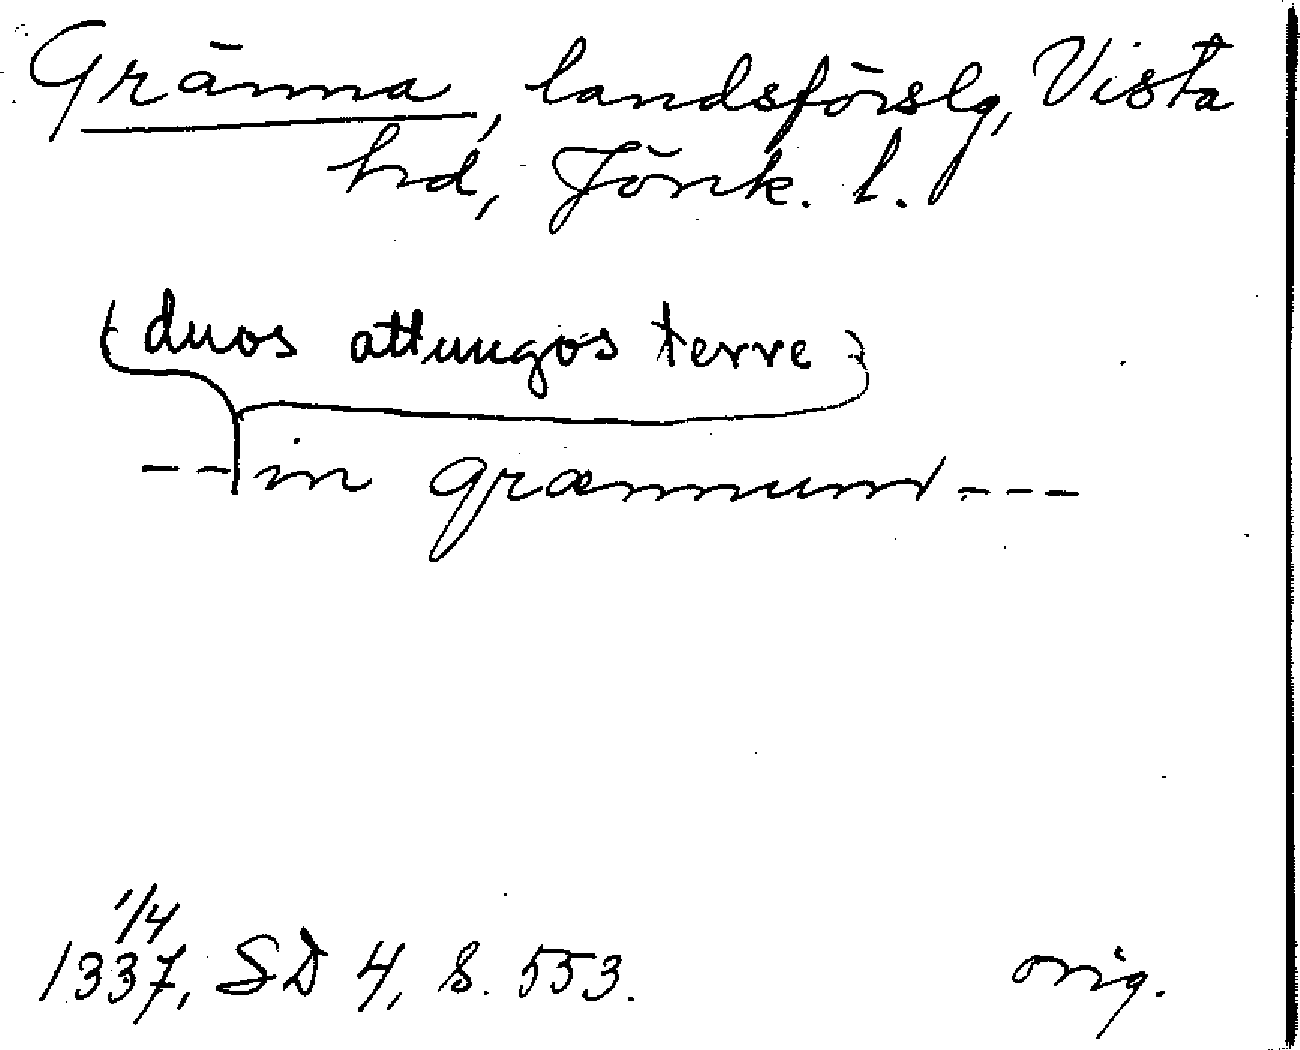 Gränna, landsförslg, Vista
hd, Jönk. l.
(duos attungos terre)
-- in grænnum ---
1/4
1337, SD 4, s. 553. orig.